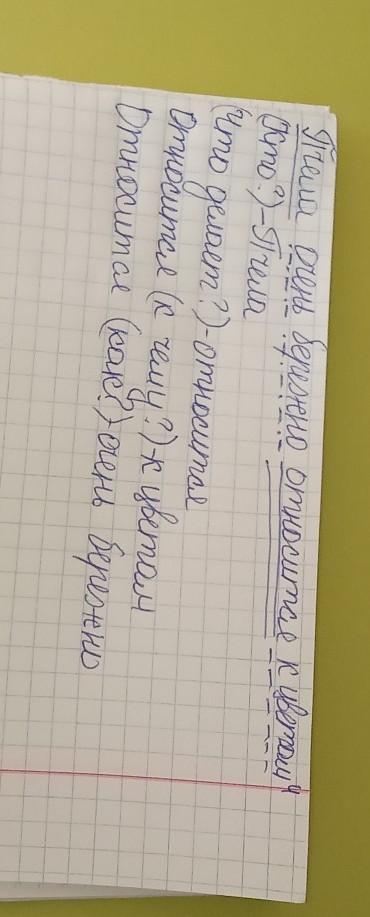 Пчела очень бережно относится к цветам ч
(Кто?) - Пчела
(Что делает?) - относится
Относится (к чему?) к цветам
Относится (как?) - очень бережно